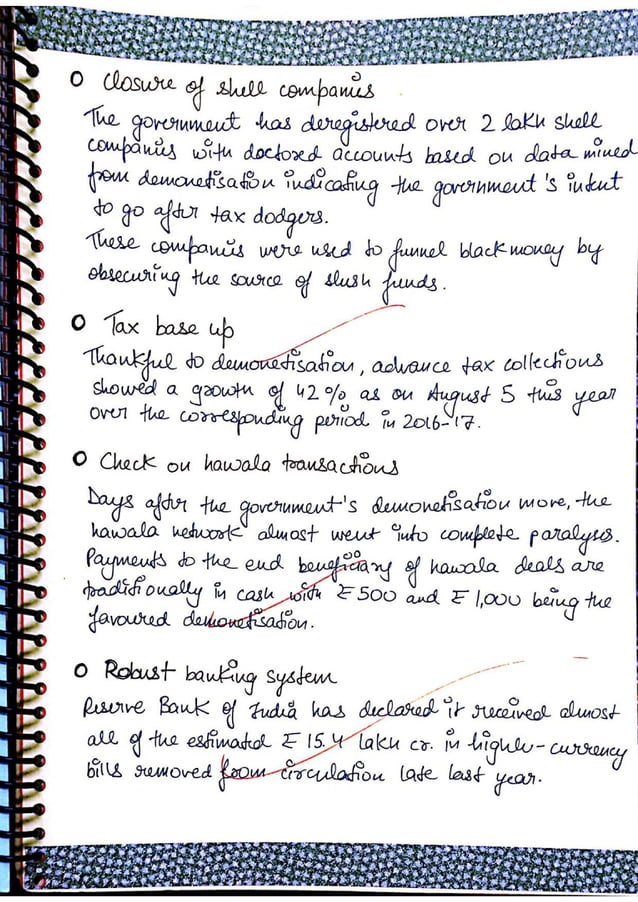 O Closure of shell companies
The government has deregistered over 2 lakh shell
companies with doctored accounts based on data mined
from demonetisation indicating the government's intent
to go after tax dodgers.
These companies were used to funnel black money by
obsecuring the source of slush funds.
O Tax base up
Thankful to demonetisation, advance tax collections
showed a growth of 42% as on August 5 this year
over the corresponding period in 2016-17.
O Check on hawala transactions
Days after the government's demonetisation more, the
hawala network almost went into complete paralyses.
Payments to the end beneficiary of hawala deals are
traditionally in cash with ₹500 and ₹1,000 being the
favoured demonetisation.
O Robust banking system
Reserve Bank of India has declared it received almost
all of the estimated ₹15.4 lakh cr. in higher-currency
bills removed from circulation late last year.